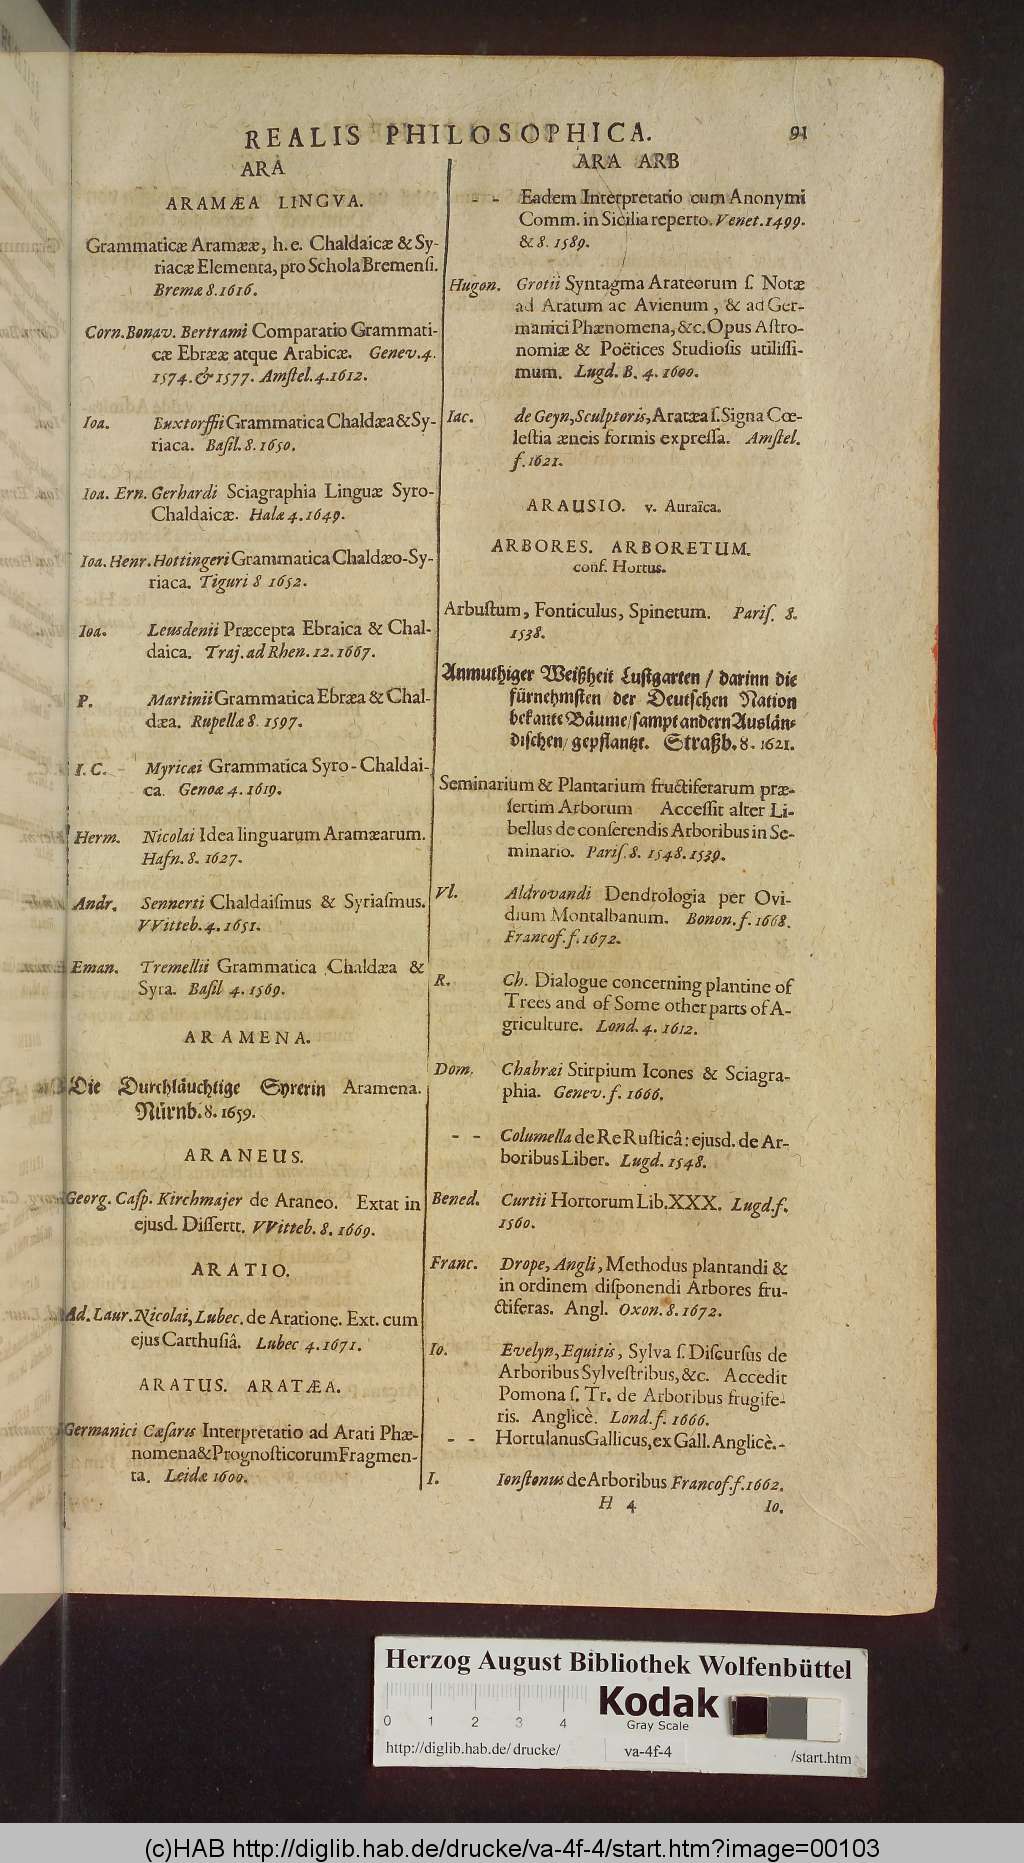 REALIS PHILOSOPHICA. 91
ARA
ARAMÆA LINGVA.
Grammaticæ Aramææ, h. e. Chaldaicæ & Sy-
riacæ Elementa, pro Schola Bremensi.
Bremæ 8. 1616.
Corn. Bonav. Bertrami Comparatio Grammati-
cæ Ebrææ atque Arabicæ. Genev. 4.
1574. & 1577. Amstel. 4. 1612.
Ioa. Buxtorffii Grammatica Chaldæa & Sy-
riaca. Basil. 8. 1650.
Ioa. Ern. Gerhardi Sciagraphia Linguæ Syro-
Chaldaicæ. Halæ 4. 1649.
Ioa. Henr. Hottingeri Grammatica Chaldæo-Sy-
riaca. Tiguri 8 1652.
Ioa. Leusdenii Præcepta Ebraica & Chal-
daica. Traj. ad Rhen. 12. 1667.
P. Martinii Grammatica Ebræa & Chal-
dæa. Rupellæ 8. 1597.
I. C. Myricæi Grammatica Syro-Chaldai-
ca. Genoæ 4. 1619.
Herm. Nicolai Idea linguarum Aramæarum.
Hafn. 8. 1627.
Andr. Sennerti Chaldaismus & Syriasmus.
VVitteb. 4. 1651.
Eman. Tremellii Grammatica Chaldæa &
Syra. Basil 4. 1569.
ARAMENA.
Die Durchläuchtige Syrerin Aramena.
Nürnb. 8. 1659.
ARANEUS.
Georg. Casp. Kirchmajer de Araneo. Extat in
ejusd. Dissertt. VVitteb. 8. 1669.
ARATIO.
Ad. Laur. Nicolai, Lubec. de Aratione. Ext. cum
ejus Carthusiâ. Lubec 4. 1671.
ARATUS. ARATÆA.
Germanici Cæsaris Interpretatio ad Arati Phæ-
nomena & Prognosticorum Fragmen-
ta. Leidæ 1600.
ARA ARB
- - Eadem Interpretatio cum Anonymi
Comm. in Sicilia reperto. Venet. 1499.
& 8. 1589.
Hugon. Grotii Syntagma Arateorum s. Notæ
ad Aratum ac Avienum, & ad Ger-
manici Phænomena, &c. Opus Astro-
nomiæ & Poëtices Studiosis utilissi-
mum. Lugd. B. 4. 1600.
Iac. de Geyn, Sculptoris, Aratæa s. Signa Cœ-
lestia æneis formis expressa. Amstel.
f. 1621.
ARAUSIO. v. Auraïca.
ARBORES. ARBORETUM.
conf. Hortus.
Arbustum, Fonticulus, Spinetum. Paris. 8.
1538.
Anmuthiger Weißheit Lustgarten / darinn die
fürnehmsten der Deutschen Nation
bekante Bäume / sampt andern Auslän-
dischen / gepflantzt. Straßb. 8. 1621.
Seminarium & Plantarium fructiferarum præ-
sertim Arborum Accessit alter Li-
bellus de conserendis Arboribus in Se-
minario. Paris. 8. 1548. 1539.
Vl. Aldrovandi Dendrologia per Ovi-
dium Montalbanum. Bonon. f. 1668.
Francof. f. 1672.
R. Ch. Dialogue concerning plantine of
Trees and of Some other parts of A-
griculture. Lond. 4. 1612.
Dom. Chabræi Stirpium Icones & Sciagra-
phia. Genev. f. 1666.
- - Columella de Re Rusticâ: ejusd. de Ar-
boribus Liber. Lugd. 1548.
Bened. Curtii Hortorum Lib. XXX. Lugd. f.
1560.
Franc. Drope, Angli, Methodus plantandi &
in ordinem disponendi Arbores fru-
ctiferas. Angl. Oxon. 8. 1672.
Io. Evelyn, Equitis, Sylva s. Discursus de
Arboribus Sylvestribus, &c. Accedit
Pomona s. Tr. de Arboribus frugife-
ris. Anglicè. Lond. f. 1666.
- - Hortulanus Gallicus, ex Gall. Anglicè. -
I. Ionstonus de Arboribus Francof. f. 1662.
H 4 Io.
Herzog August Bibliothek Wolfenbüttel
0 1 2 3 4
Kodak
Gray Scale
http://diglib.hab.de/drucke/ va-4f-4 /start.htm
(c)HAB http://diglib.hab.de/drucke/va-4f-4/start.htm?image=00103